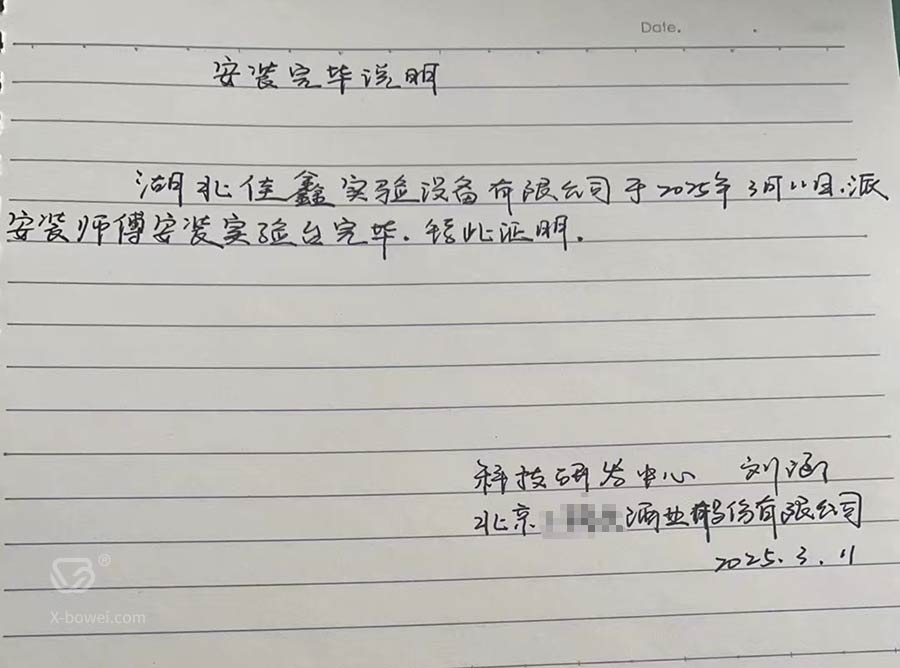 Date.
安装完毕说明
湖北佳鑫实验设备有限公司于2025年3月11日.派
安装师傅安装实验台完毕.特此证明.
科技研发中心 刘涵
北京 酒业股份有限公司
2025.3.11
X-bowei.com